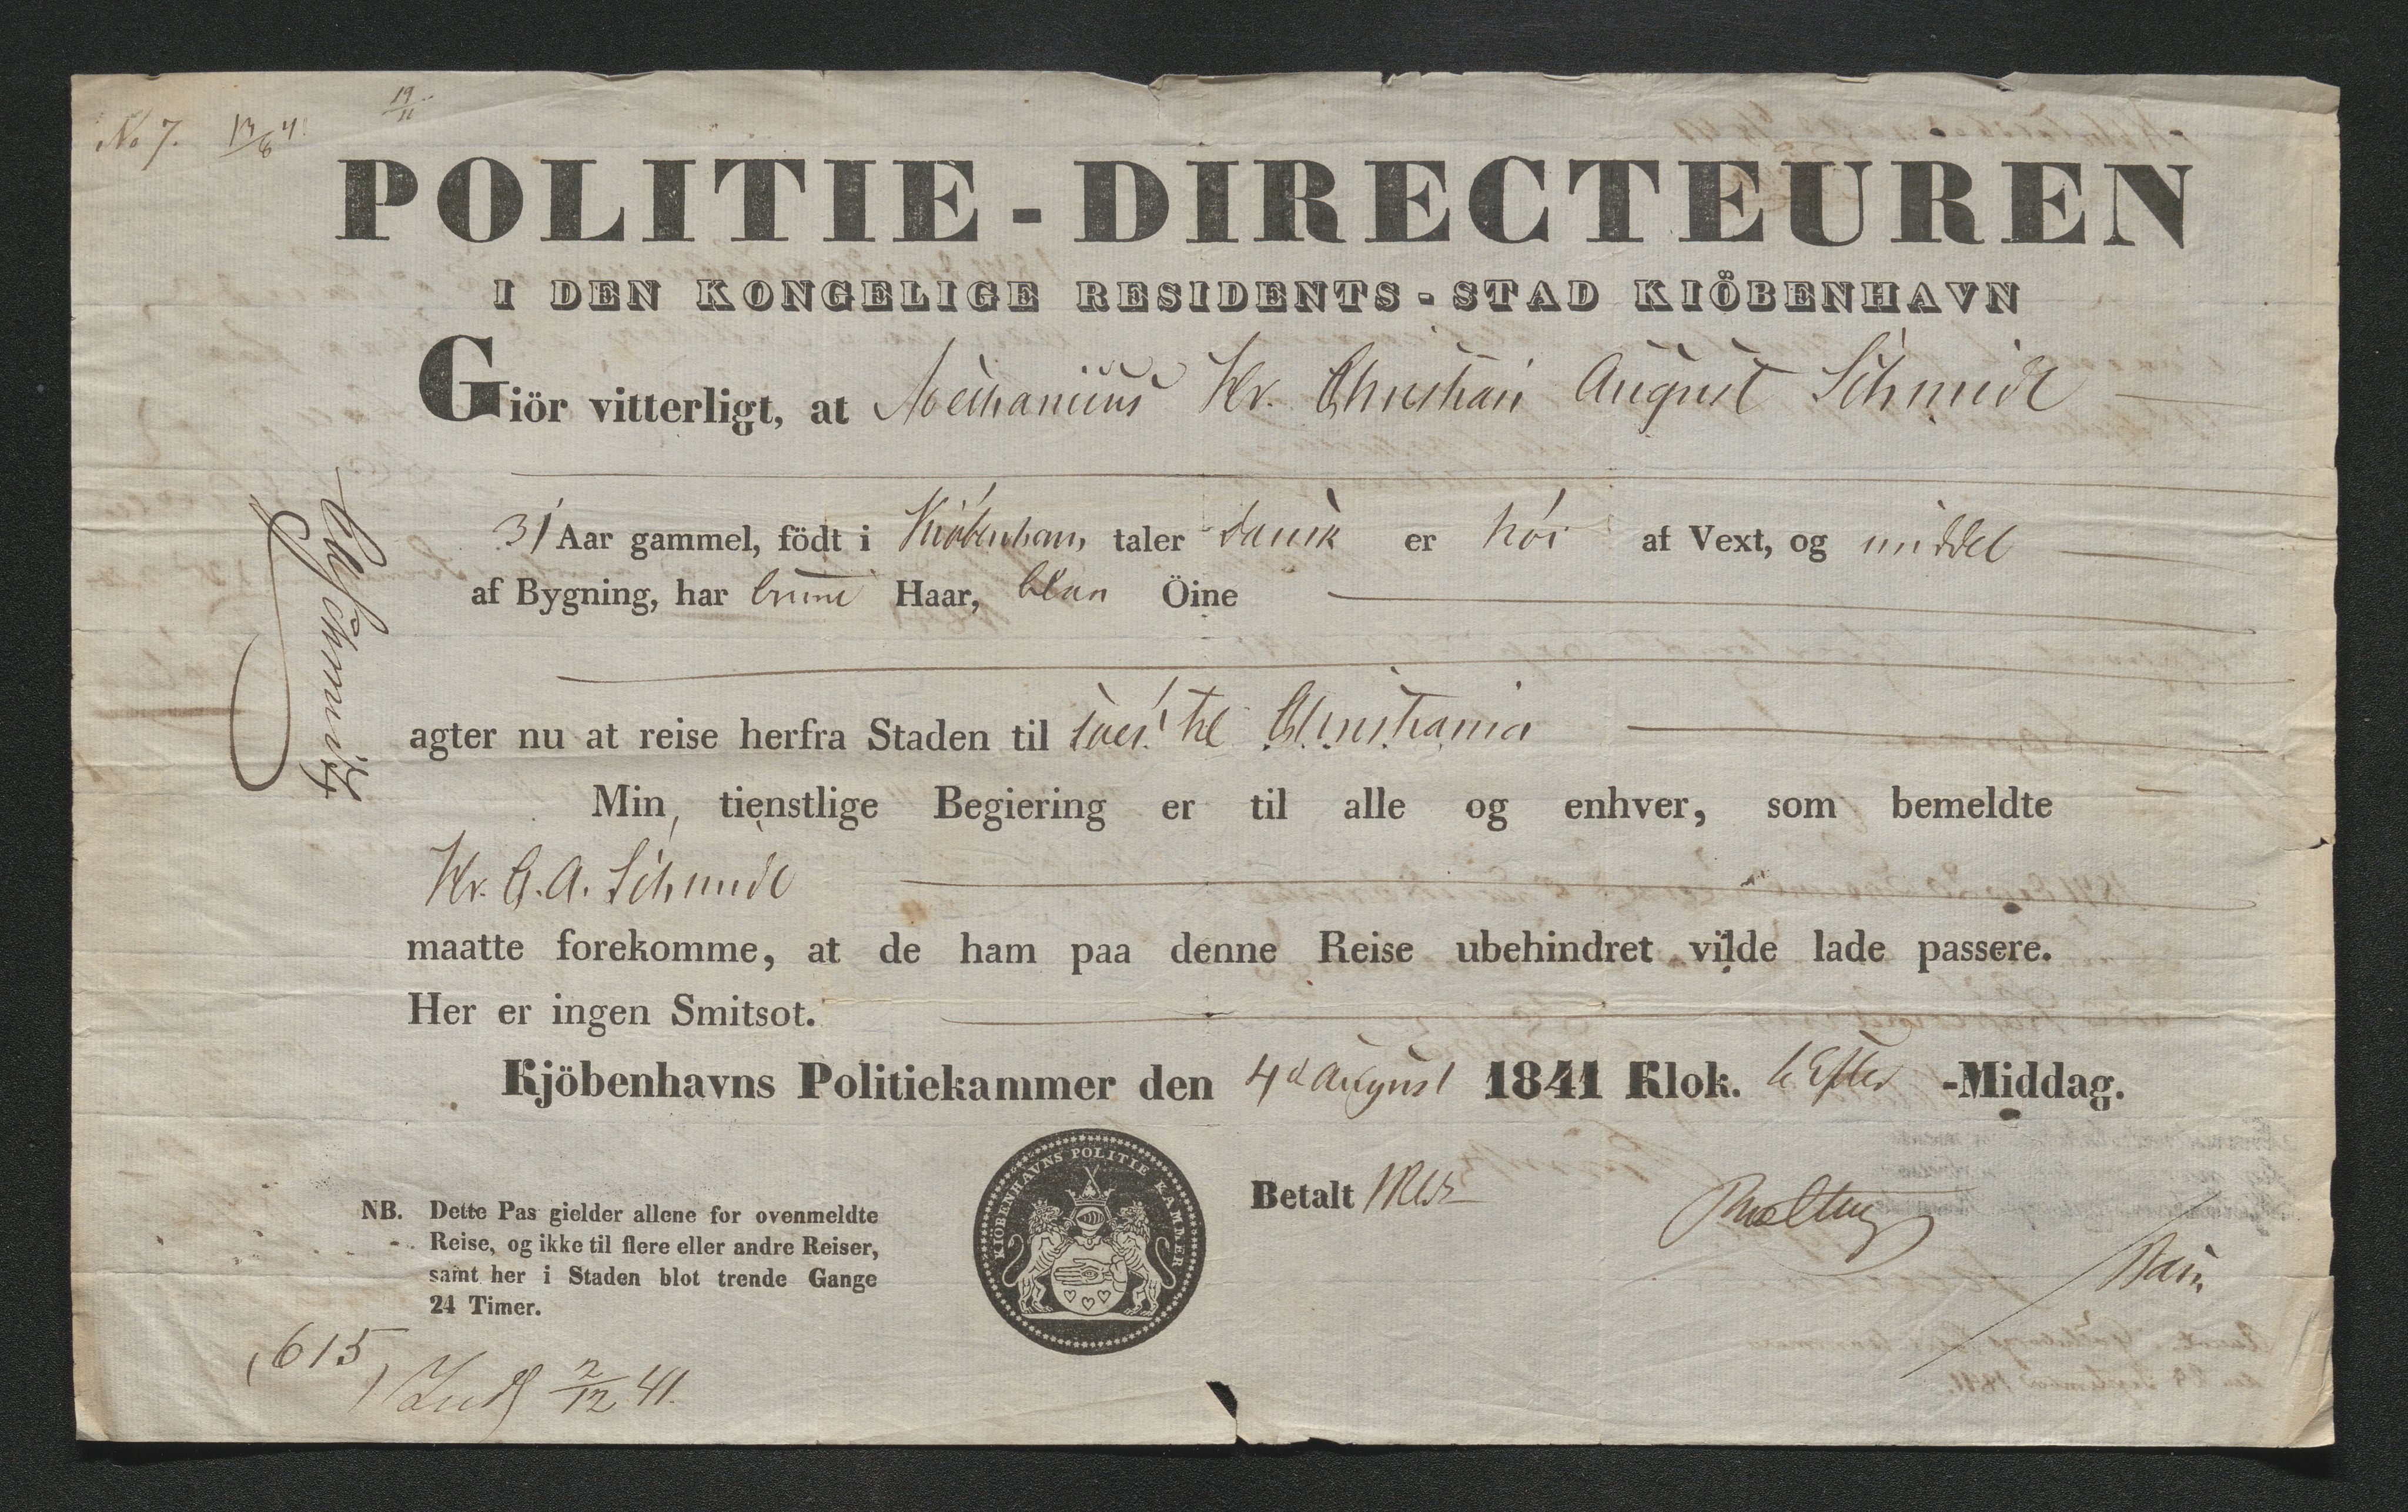 No 7.
19/11
POLITIE-DIRECTEUREN
I DEN KONGELIGE RESIDENTS-STAD KIÖBENHAVN
Giör vitterligt, at Mechanicus Hr. Christian August Schmidt
31 Aar gammel, födt i Kiöbenhavn taler dansk er höi af Vext, og middel
af Bygning, har brune Haar, blaa Öine
agter nu at reise herfra Staden til Söes til Christiania
Min tienstlige Begiering er til alle og enhver, som bemeldte
Hr. C. A. Schmidt
maatte forekomme, at de ham paa denne Reise ubehindret vilde lade passere.
Her er ingen Smitsot.
Kjöbenhavns Politiekammer den 4d August 1841 Klok. 6 Efter -Middag.
KIÖBENHAVNS POLITIE KAMMER
Betalt
NB. Dette Pas gielder allene for ovenmeldte
Reise, og ikke til flere eller andre Reiser,
samt her i Staden blot trende Gange
24 Timer.
615
2/12 41.
CASchmidt